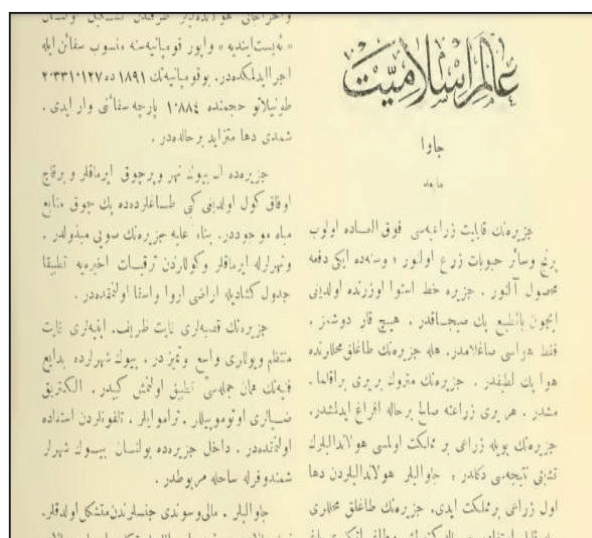 عالم اسلامیت
جاوا
مابعد
جزیره‌نك قابلیت زراعیه‌سی فوق العاده اولوب
برنج وسائر حبوبات زرع اولنور ؛ وسنه‌ده ایکی دفعه
محصول آلنور . جزیره خط استوا اوزرنده اولدیغی
ایچون بالطبع پك صیجاقدر . هیچ قار دوشمز .
فقط هواسی صاغلامدر. هله جزیره‌نك طاغلق محللرنده
هوا پك لطیفدر . جزیره‌نك متروك بریری براقلما .
مشدر . هر یری زراعته صالح برحاله افراغ ایدلمشدر.
جزیره‌نك بویله زراعی بر مملکت اولمسی هولاندالیلرك
نتیجه‌سی دکلدر ، جاوالیلر هولاندالیلردن دها
اول زراعی برمملکت ایدی. جزیره‌نك طاغلق محللری
واخراجاتی هولاندالیلر طرفندن
« ئه‌یست‌ایندیه » واپور قومپانیه‌سنه منسوب سفائن ایله
اجرا ایدلمکده‌در. بوقومپانیه‌نك ۱۸۹۱ ده ۲۰۳۳۱۰۱۲۷
طونیلاتو حجمنده ۱۰۸۸٤ پارچه سفائنی وار ایدی .
شمدی دها متزاید برحالده‌در .
جزیره‌ده اك بیوك نهر وبرچوق ایرماقلر و برقاچ
اوفاق کول اولدیغی کبی طاغلرده‌ده پك چوق منابع
میاه موجوددر. بناء علیه جزیره‌نك صویی مبذولدر .
ونهرلرله ایرماقلر وکوللردن ترقیات اخیره‌یه تطبیقا
جدول کشادیله اراضی اروا واسقا اولنمقده‌در .
جزیره‌نك قصبه‌لری غایت ظریف، ابنیه‌لری غایت
منتظم ویوللری واسع وتمیزدر . بیوك شهرلرده بدایع
فنیه‌نك همان جمله‌سی تطبیق اولنمش کیدر . الکتریق
ضیالری اوتوموبیللر . تراموایلر . تلفونلردن استفاده
اولنمقده‌در . داخل جزیره‌ده بولنان بیوك شهرلر
شمندوفرله ساحله مربوطدر .
جاوالیلر . مالی وسوندی جنسلرندن متشکل اولدقلر.